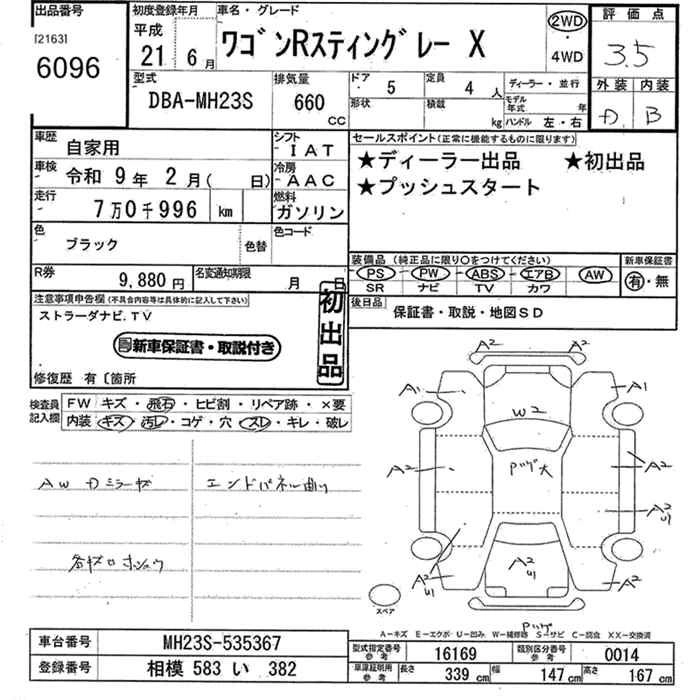 出品番号 初度登録年月 車名・グレード 評価点
[2163] 平成 2WD
6096 21 6月 ワゴンRスティングレー X ・ 3.5
4WD
型式 排気量 ドア 5 定員 4人 ディーラー・並行 外装 内装
DBA-MH23S 660 CC 形状 積載 kg モデル年式 年 D B
ハンドル 左・右
車歴 自家用 シフト IAT セールスポイント(正常に機能するものに限ります)
車検 令和 9年 2月( 日) 冷房 AAC ★ディーラー出品 ★初出品
走行 7万0千996 km 燃料 ガソリン ★プッシュスタート
色 ブラック 色替 色コード
装備品 (純正品に限り○をつけてください) 新車保証書
R券 9,880円 名変通知期限 月 日 PS・PW・ABS・エアB・AW 有・無
SR ナビ TV カワ
注意事項申告欄(不具合内容等は具体的に記入して下さい) 初出品 後日品 保証書・取説・地図SD
ストラーダナビ.TV
新車保証書・取説付き
修復歴 有〔箇所
検査員記入欄 FW キズ・飛石・ヒビ割・リペア跡・×要
内装 キズ・汚レ・コゲ・穴・スレ・キレ・破レ
A2 A2
A1 A1
W2
AW Dミラーキズ エンドパネル曲り A2 Pツゲ大 A2
A2 U1
各キズロ ホシュウ
A2 U1 A2 U1 A2
スペア
Pツゲ
A-キズ E-エクボ U-凹み W-補修跡 S-サビ C-腐食 XX-交換済
車台番号 MH23S-535367 型式指定番号 参考 16169 類別区分番号 参考 0014
登録番号 相模 583 い 382 車庫証明用 参考 長さ 339 cm 幅 147 cm 高さ 167 cm